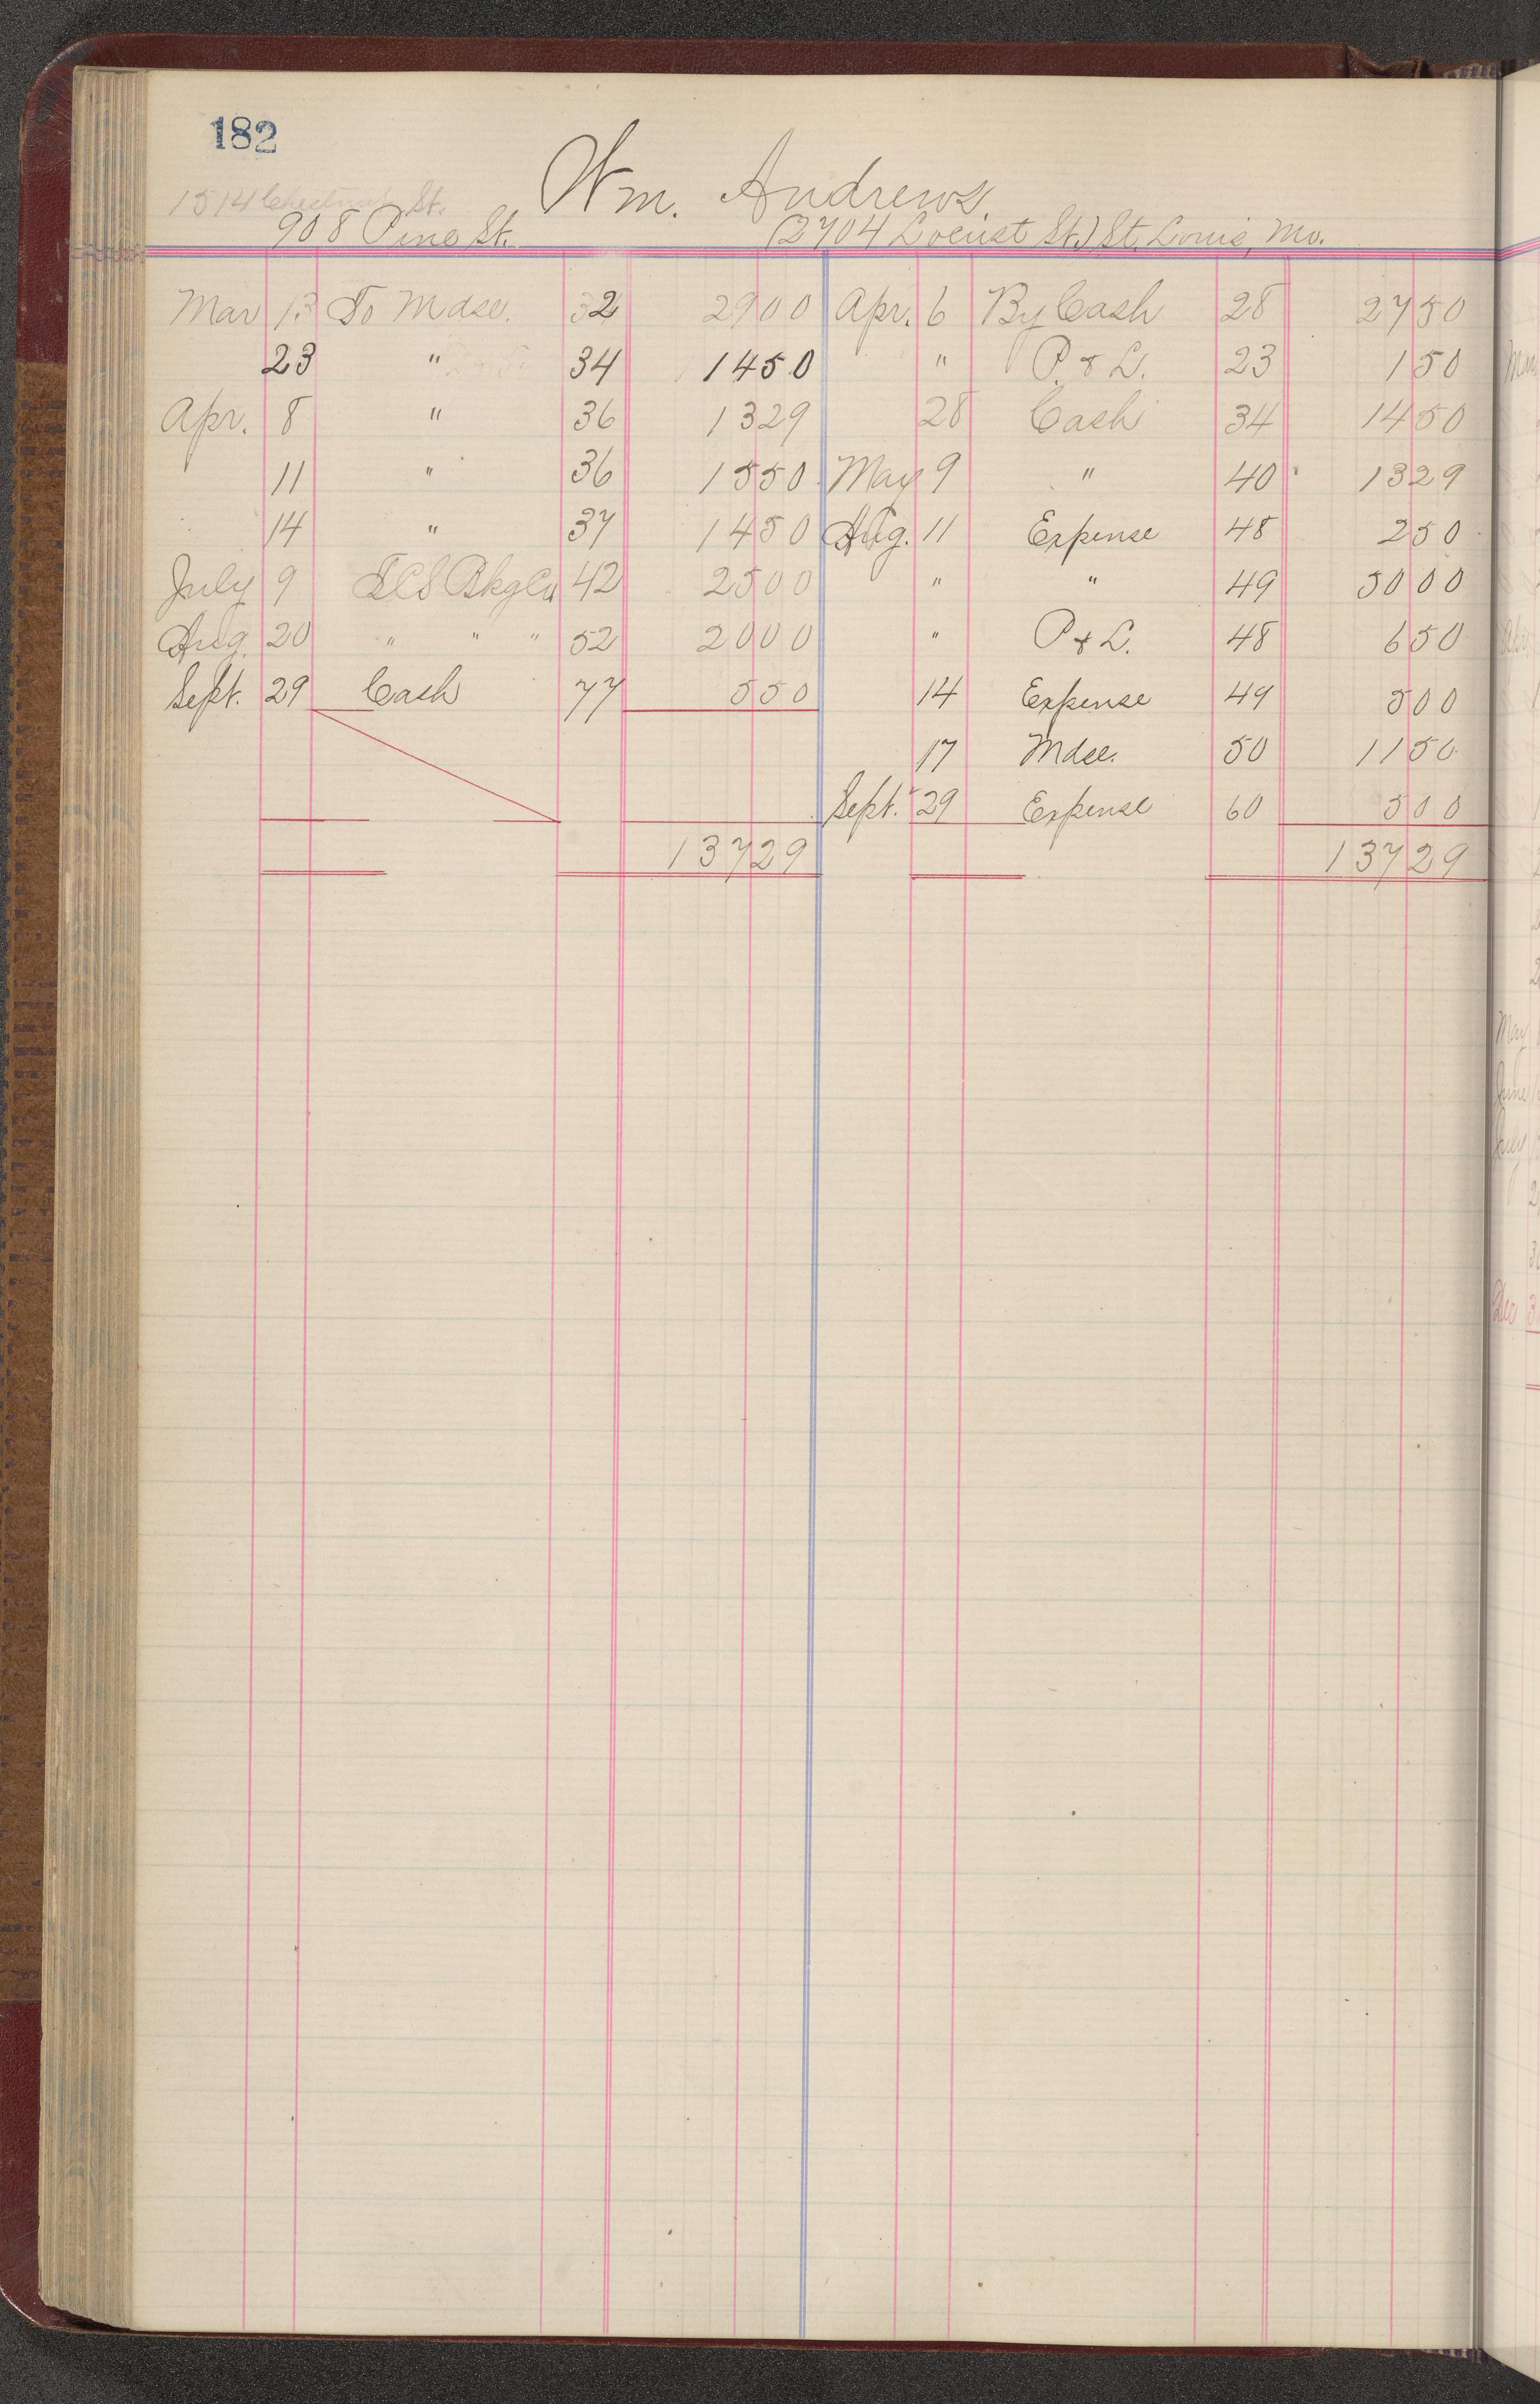 182
Wm. Andrews.
1514 Chestnut St.
908 Pine St. (2704 Locust St.) St. Louis, Mo.
Mar 13 To Mdse. 32 2900 Apr. 6 By Cash 28 2750
23 " 34 1450 " P. & L. 23 150
Apr. 8 " 36 1329 28 Cash 34 1450
11 " 36 1550 May 9 " 40 1329
14 " 37 1450 Aug. 11 Expense 48 250
July 9 Bkg Co 42 2500 " " 49 5000
Aug. 20 " " " 52 2000 " P & L. 48 650
Sept. 29 Cash 77 550 14 Expense 49 500
17 Mdse. 50 1150
Sept. 29 Expense 60 500
13729 13729
May
June
July
Dec